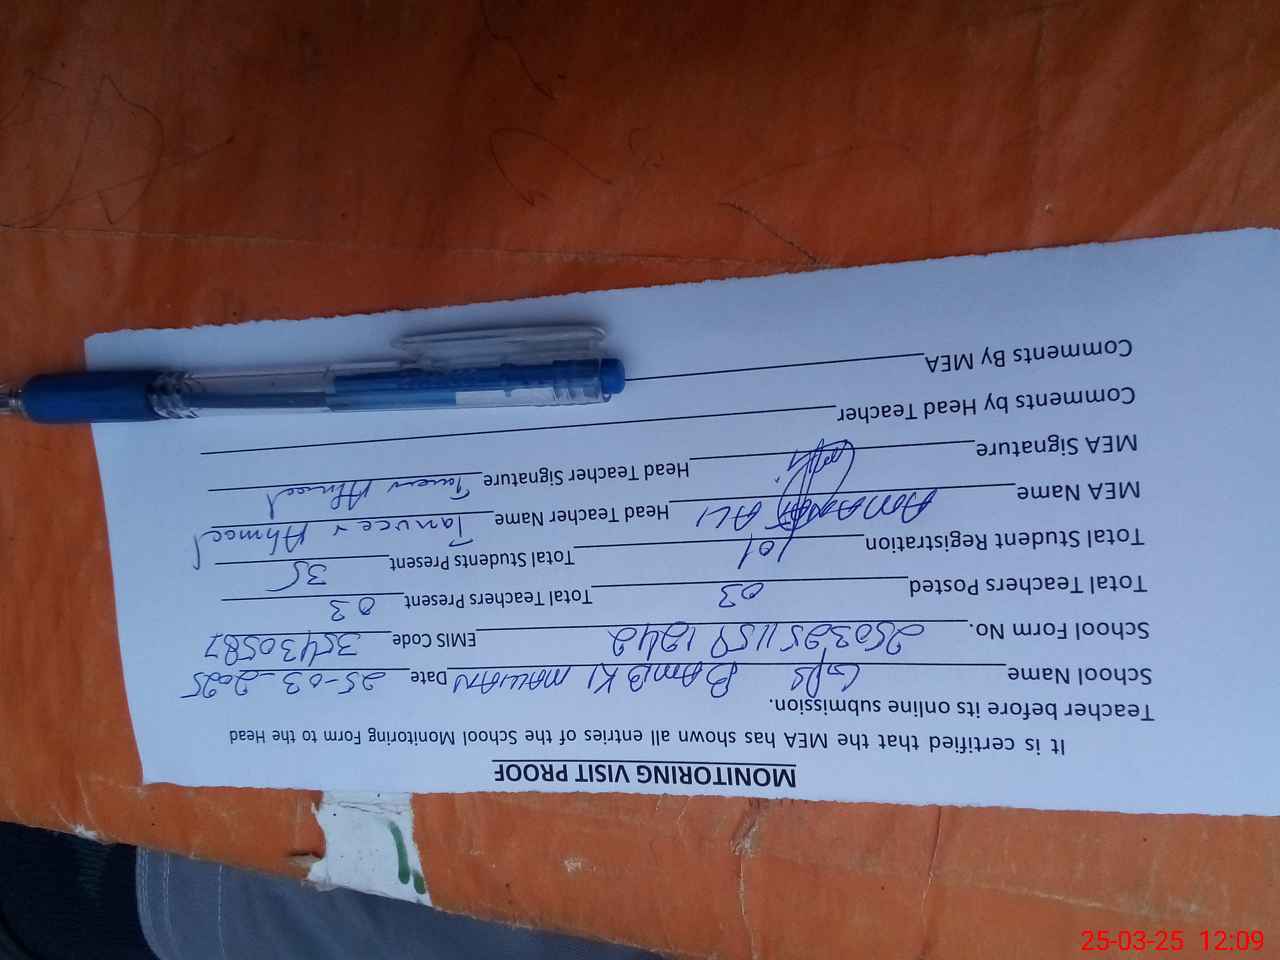 MONITORING VISIT PROOF
It is certified that the MEA has shown all entries of the School Monitoring Form to the Head
Teacher before its online submission.
School Name GPS BAMBKI MALWAN Date 25-03-2025
School Form No. 25032511591242 EMIS Code 35430587
Total Teachers Posted 03 Total Teachers Present 03
Total Student Registration 101 Total Students Present 35
MEA Name ALI Head Teacher Name Tanveer Ahmed
MEA Signature Head Teacher Signature Tanveer Ahmed
Comments by Head Teacher
Comments By MEA
25-03-25 12:09